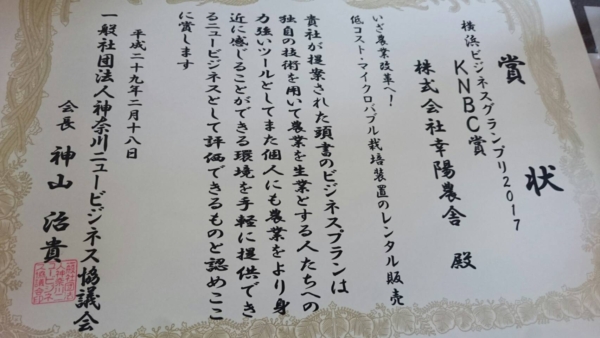 賞状
横浜ビジネスグランプリ2017
KNBC賞
株式会社幸陽農舎 殿
いざ農業改革へ!
低コスト・マイクロバブル栽培装置のレンタル販売
貴社が提案された頭書のビジネスプランは
独自の技術を用いて農業を生業とする人たちへの
力強いツールとしてまた個人にも農業をより身
近に感じることができる環境を手軽に提供でき
るニュービジネスとして評価できるものと認めここ
に賞します
平成二十九年二月十八日
一般社団法人神奈川ニュービジネス協議会
会長 神山 治貴